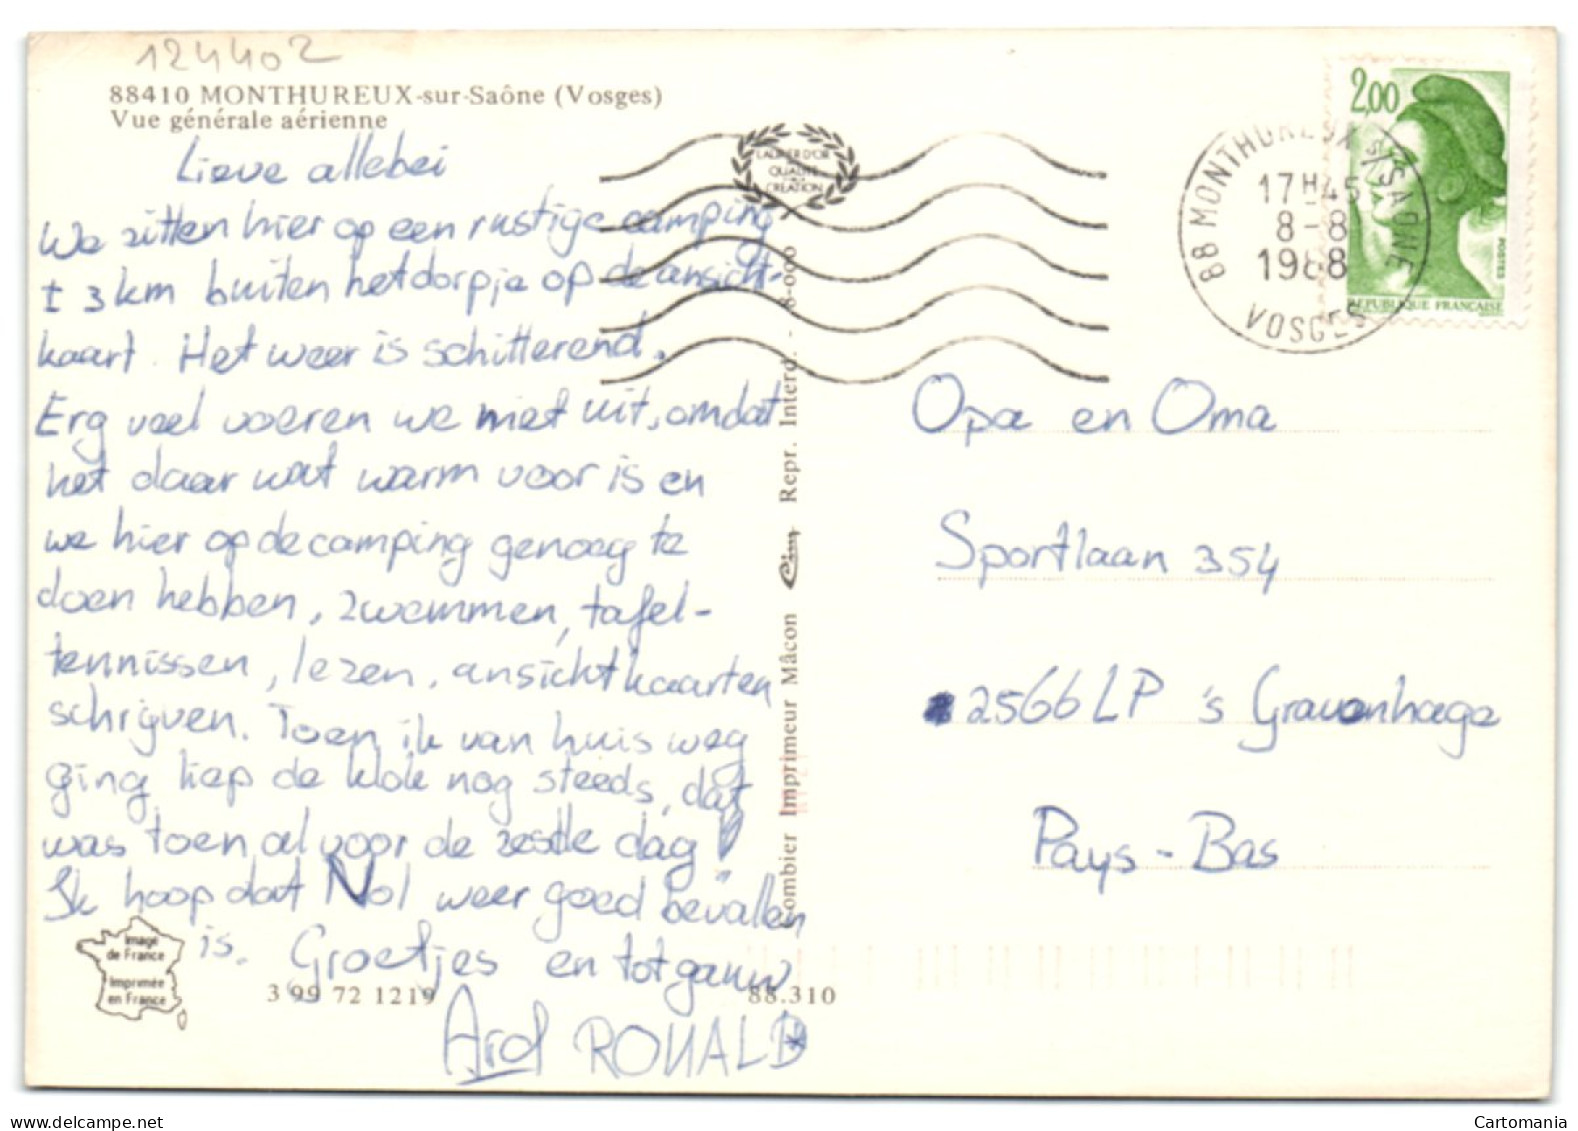 124402
88410 MONTHUREUX-sur-Saône (Vosges)
Vue générale aérienne
Lieve allebei
We zitten hier op een rustige camping
± 3 km buiten het dorpje op de ansicht-
kaart. Het weer is schitterend.
Erg veel voeren we niet uit, omdat
het daar wat warm voor is en
we hier op de camping genoeg te
doen hebben, zwemmen, tafel-
tennissen, lezen, ansichtkaarten
schrijven. Toen ik van huis weg
ging liep de klok nog steeds, dat
was toen al voor de zesde dag!
Ik hoop dat Nol weer goed bevallen
is. Groetjes en tot gauw
Arol RONALD
Image
de France
Imprimée
en France
3 99 72 1219
88.310
Combier Imprimeur Mâcon Cim Repr. Interd. - 8-000
LAURIER D'OR
QUALITÉ
CREATION
88 MONTHUREUX S/SAONE
17H45
8-8
1988
VOSGES
2,00
POSTES
REPUBLIQUE FRANÇAISE
Opa en Oma
Sportlaan 354
2566 LP 's Gravenhage
Pays-Bas
Cartomania